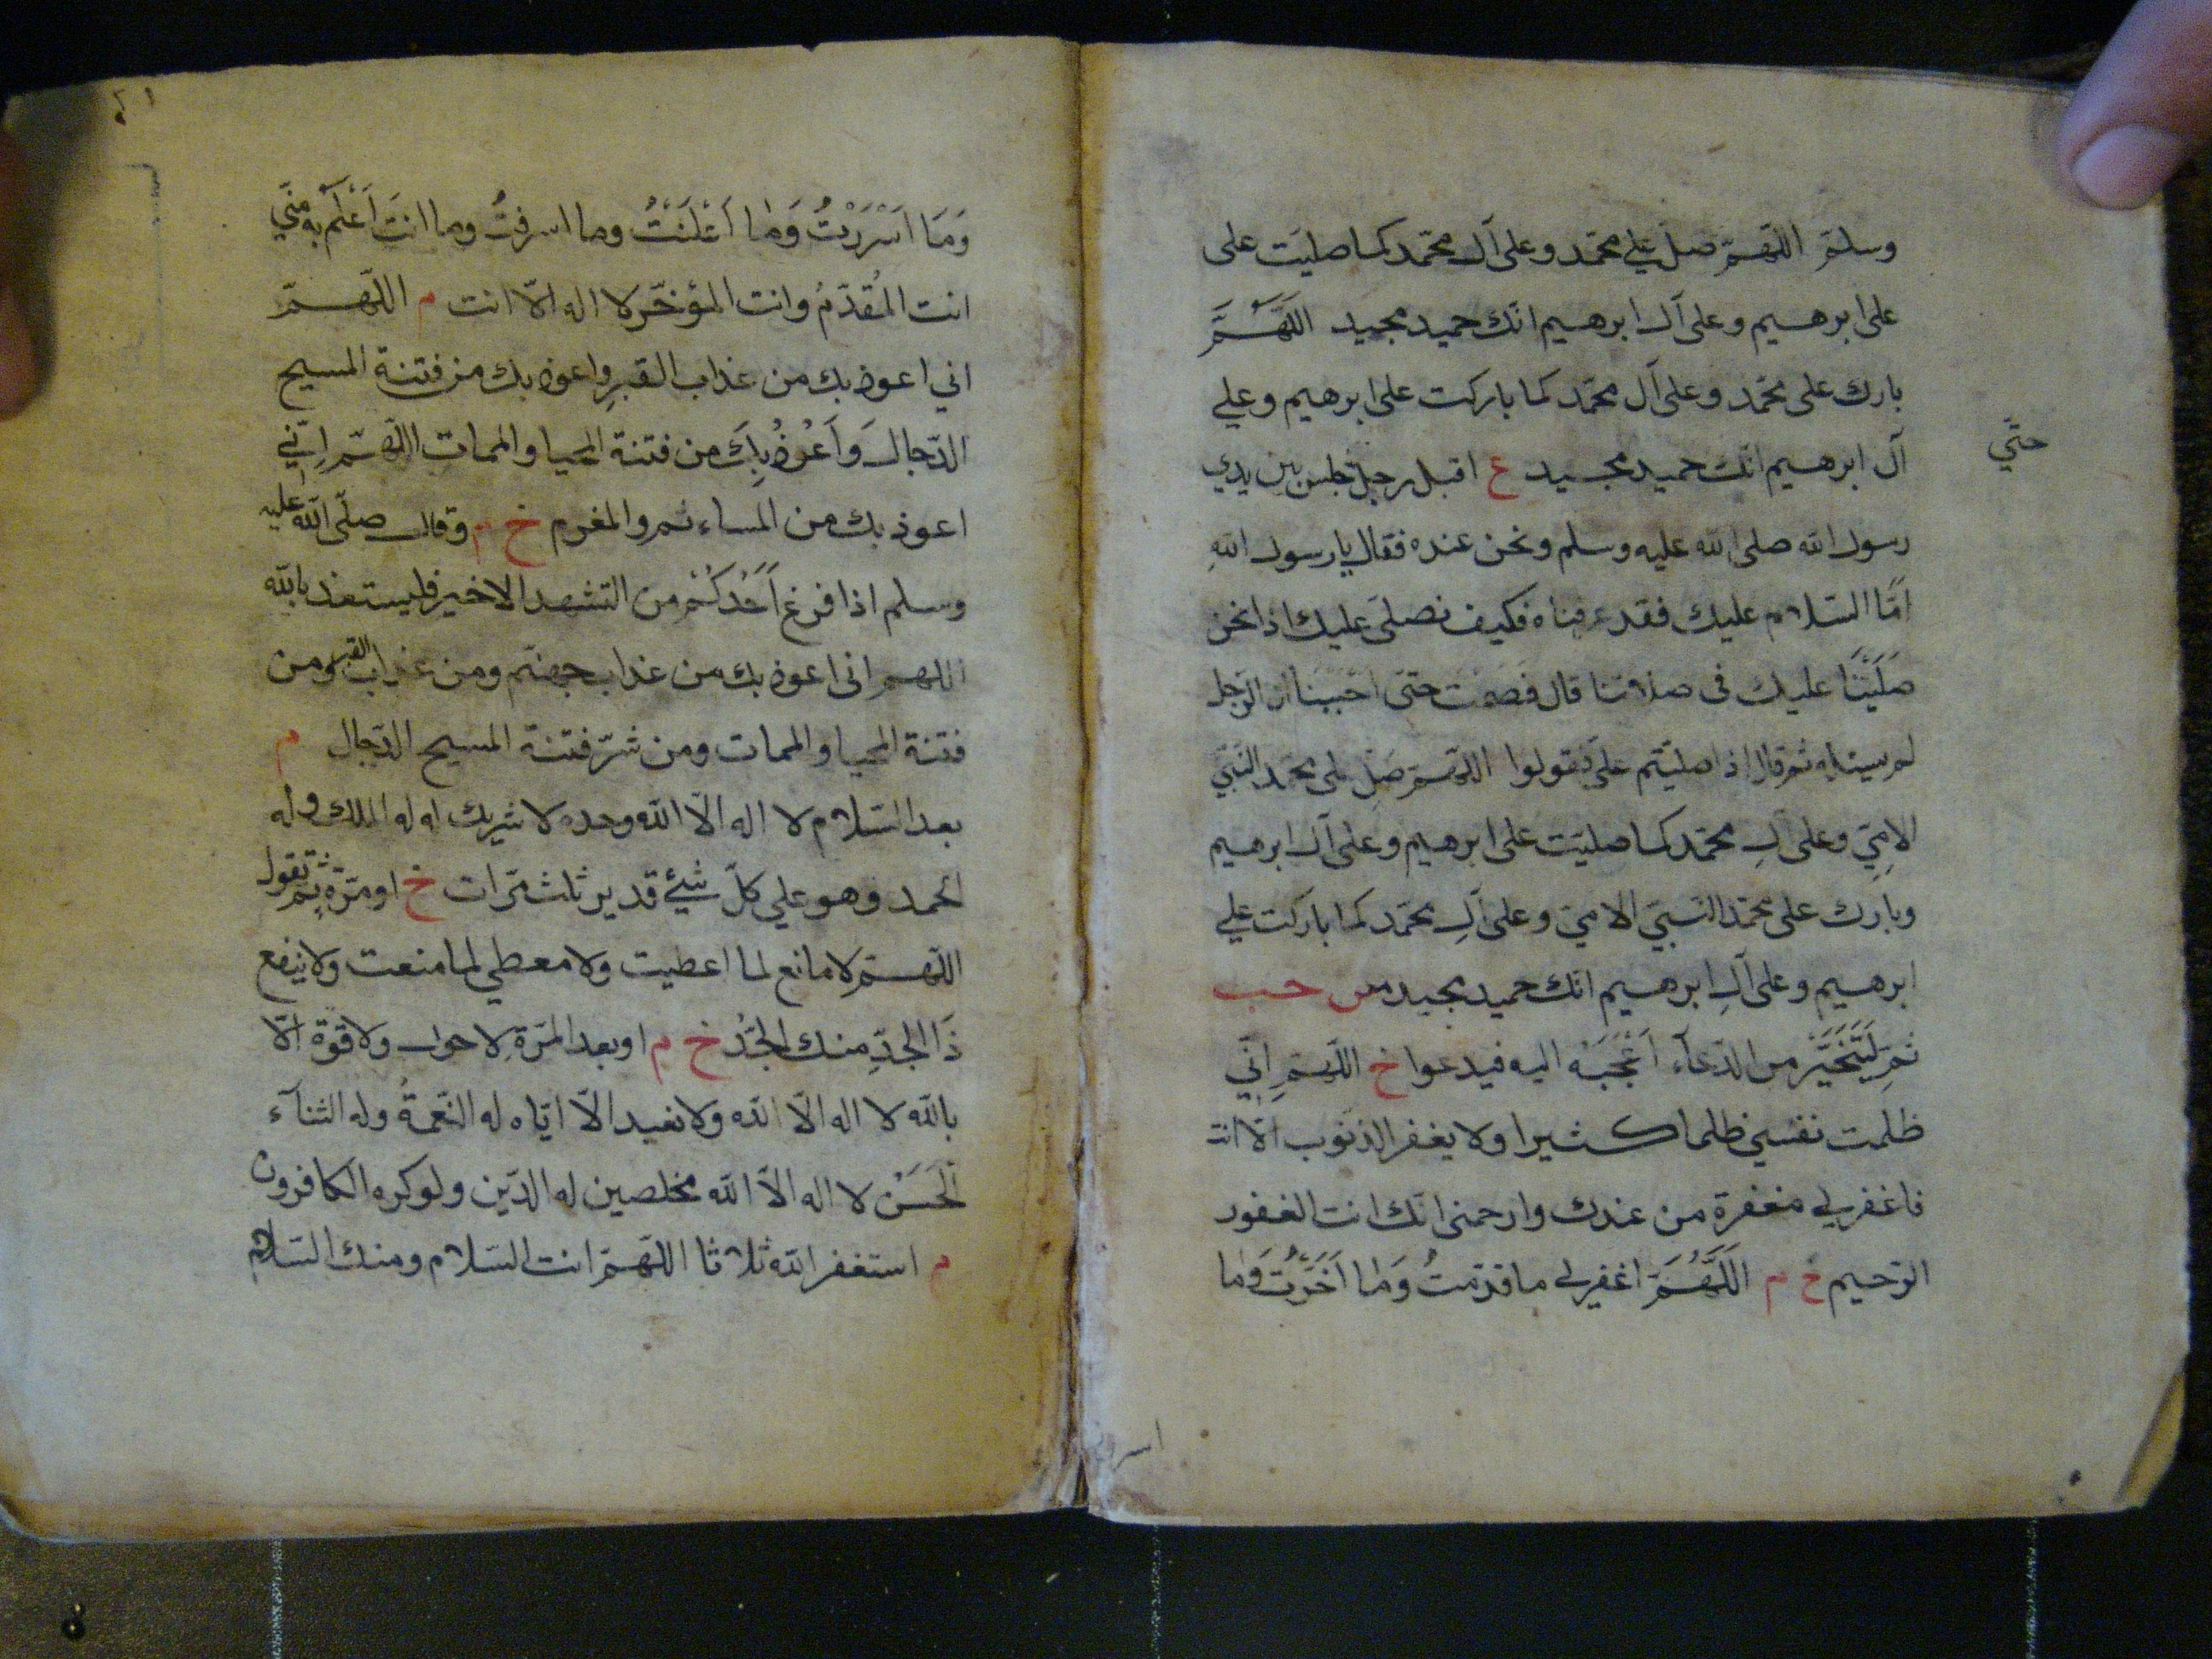 وسلم اللهمّ صلّ علي محمّد وعلى آل محمّد كما صليت على
على ابرهيم وعلى آل ابرهيم انّك حميد مجيد اللَّهُمَّ
بارك على محمّد وعلى آل محمّد كما باركت على ابرهيم وعلي
آل ابرهيم انّك حميد مجيد ع اقبل رجل جلس بين يدي
حتّي
رسول الله صلى الله عليه وسلم ونحن عنده فقال يا رسول الله
امّا السّلام عليك فقد عرفناه فكيف نصلي عليك اذا نحن
صَلَّيْنَا عليك فى صلاتنا قال فصمت حتى احببنا ان الرّجل
لم يسئله ثم قال اذا صليتم علي فقولوا اللّهمّ صلّ على محمد النّبيّ
الامّيّ وعلى آلِ محمّد كما صليت على ابرهيم وعلى آل ابرهيم
وبارك على محمّد النّبيّ الامّيّ وعلى آلِ محمّد كما باركت علي
ابرهيم وعلى آلِ ابرهيم انّك حميد مجيد مس حب
ثم لِيَتَخَيَّرْ من الدّعآء اَعْجَبَهُ اليه فيدعوا خ اللّهمّ اِنّي
ظلمت نفسي ظلما كثيرا ولا يغفر الذنوب الّا انت
فاغفرلي مغفرة من عندك وارحمنى انّك انت الغفور
الرّحيم خ م اَللَّهُمَّ اغفرلي ما قدّمتُ وَمَا اَخَّرْتُ وَما
اسر
وَمَا اَسْرَرْتُ وَمَا اَعْلَنْتُ وما اسرفتُ وما انتَ اَعْلَمُ به منّي
انت المُقدّمُ وانت المؤخّر لا اله الّا انت م اللّهمّ
اني اعوذ بك من عذاب القبرِ واعوذ بك من فتنة المسيح
الدّجال وَاَعُوذُ بِكَ من فتنة المحيا والممات اللّهمّ اِنّي
اعوذ بك من المآءثم والمغرم خ م وقال صلّى الله عليه
وسلم اذا فرغ اَحَدُكُمْ من التشهد الاخير فليستعذ بالله
اللهم انى اعوذ بك من عذاب جهنّم ومن عذاب القبر ومن
فتنة المحيا والممات ومن شرّ فتنة المسيح الدّجال م
بعد السّلام لا اله الّا الله وحده لا شريك له له الملك وله
الحمد وهو علي كلّ شيئ قدير ثلث مّرات خ او مرّة ثم تقول
اللّهمّ لا مانع لما اعطيت ولا معطي لما منعت ولا ينفع
ذَا الجدّ منك الجدُّ خ م او بعد المرّة لا حول ولا قوّة الّا
بالله لا اله الّا الله ولا نعبد الّا ايّاه له النّعمةُ وله الثنآء
الْحَسَنُ لا اله الّا الله مخلصين له الدّين ولو كره الكافرون
م استغفر الله ثلاثا اللّهمّ انت السّلام ومنك السّلام